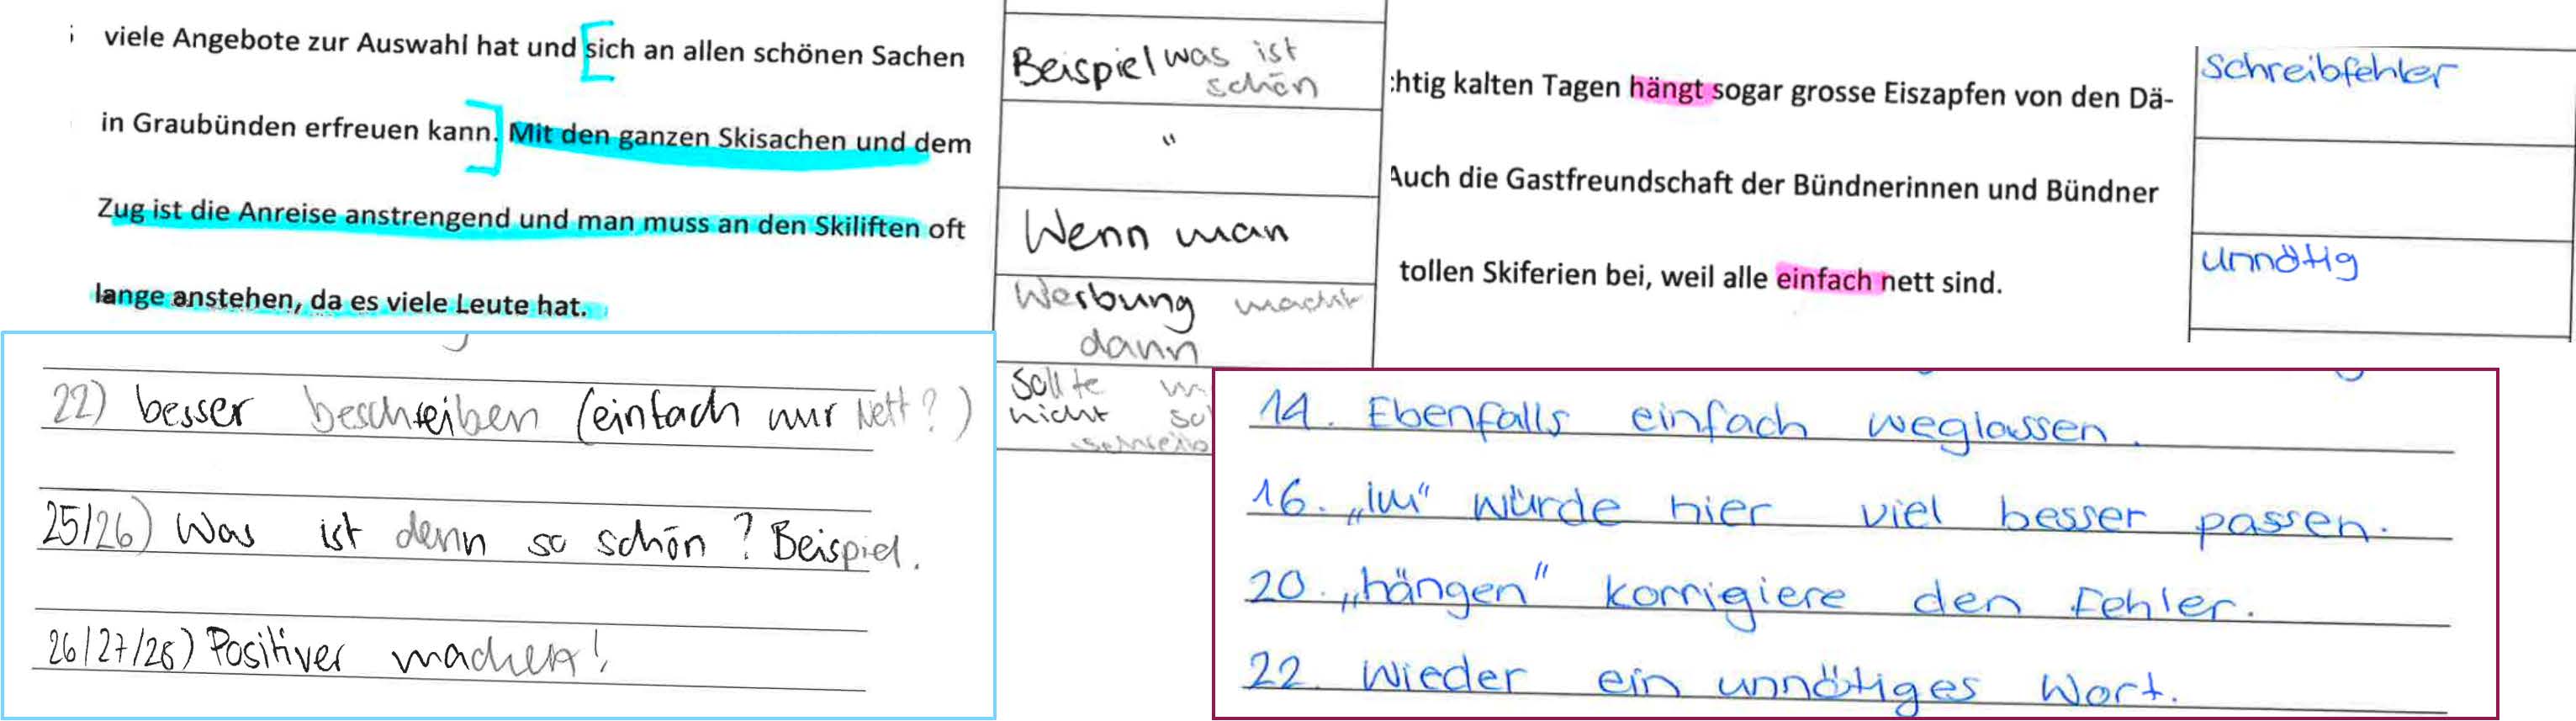 viele Angebote zur Auswahl hat und sich an allen schönen Sachen
in Graubünden erfreuen kann. Mit den ganzen Skisachen und dem
Zug ist die Anreise anstrengend und man muss an den Skiliften oft
lange anstehen, da es viele Leute hat.
Beispiel was ist
schön
"
Wenn man
Werbung macht
dann
sollte
nicht
:htig kalten Tagen hängt sogar grosse Eiszapfen von den Dä-
Auch die Gastfreundschaft der Bündnerinnen und Bündner
tollen Skiferien bei, weil alle einfach nett sind.
Schreibfehler
unnötig
22) besser beschreiben (einfach nur Nett?)
25/26) Was ist denn so schön? Beispiel.
26/27/28) Positiver machen!
14. Ebenfalls einfach weglassen.
16. „Im" würde hier viel besser passen.
20. „hängen" korrigiere den Fehler.
22. Wieder ein unnötiges Wort.